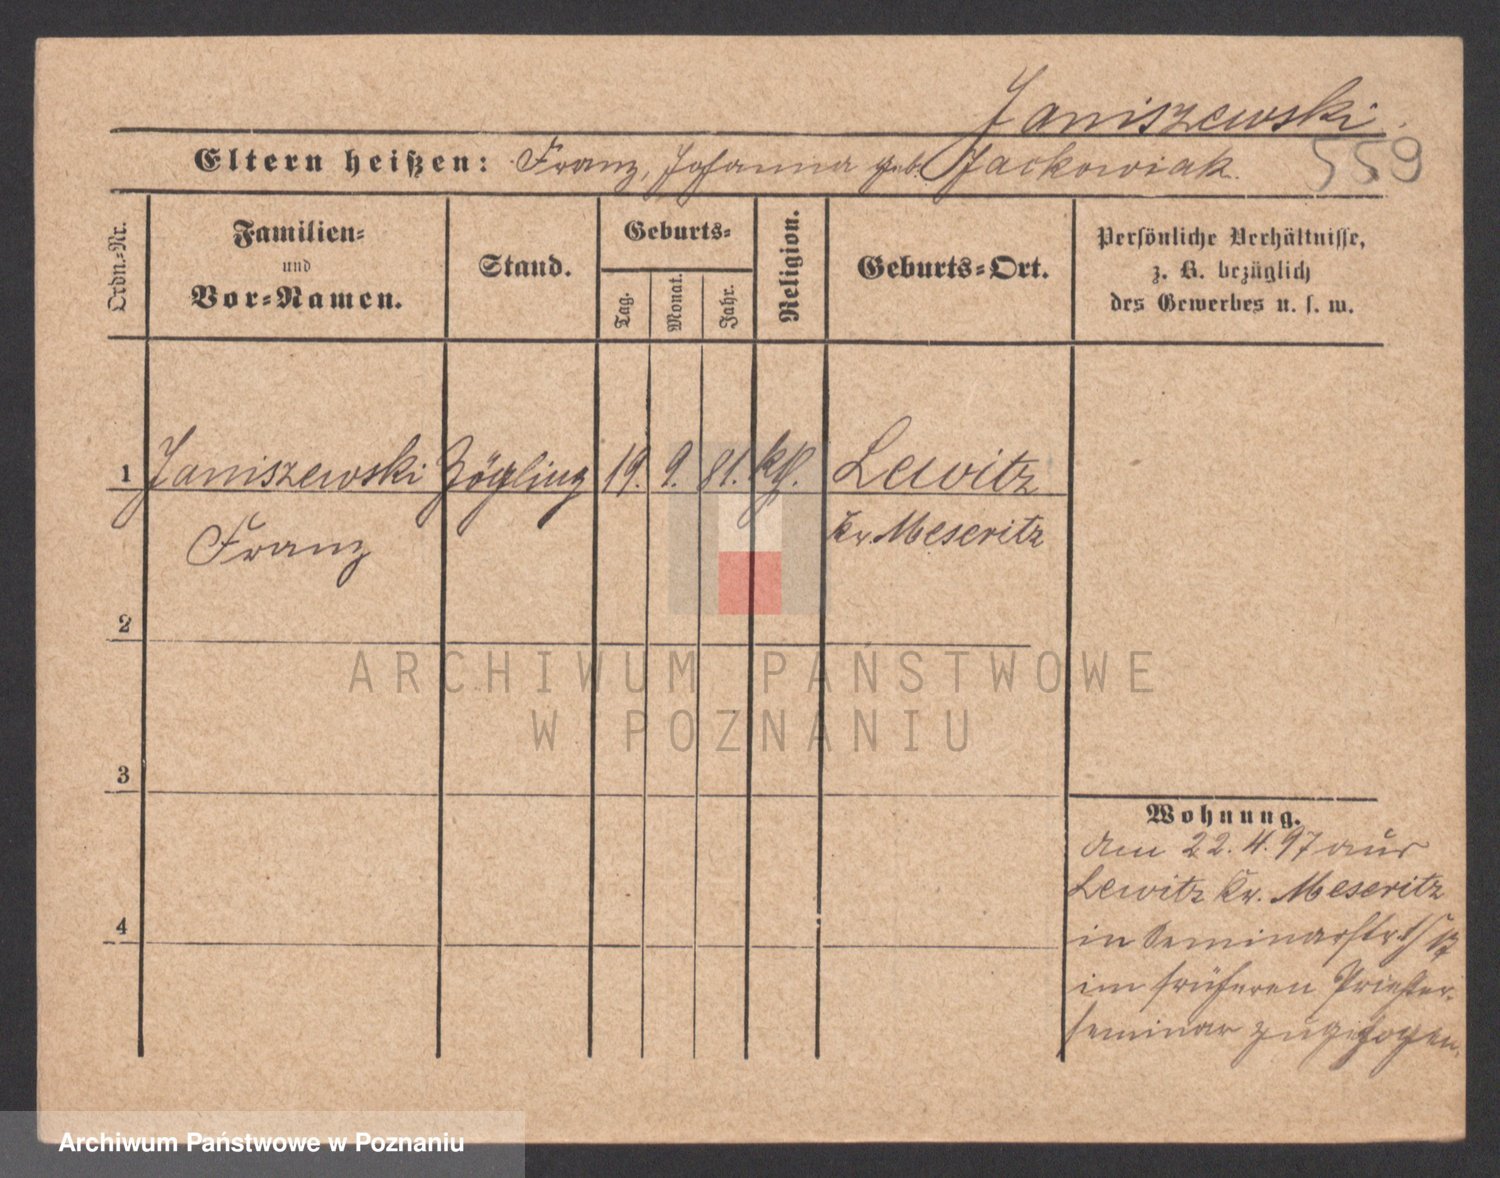 Janiszewski.
Eltern heißen: Franz, Johanna geb. Jackowiak.
559
Ordn.-Nr.
Familien-
und
Vor-Namen.
Stand.
Geburts-
Tag.
Monat.
Jahr.
Religion.
Geburts-Ort.
Persönliche Verhältnisse,
z. B. bezüglich
des Gewerbes u. s. w.
1 Janiszewski Zögling 19. 9. 81. kth. Lewitz
Franz Kr. Meseritz
2
3
4
Wohnung.
Am 22.4.97 aus
Lewitz Kr. Meseritz
in Seminarstr.
im früheren Priester-
seminar zugezogen.
ARCHIWUM PAŃSTWOWE
W POZNANIU
Archiwum Państwowe w Poznaniu